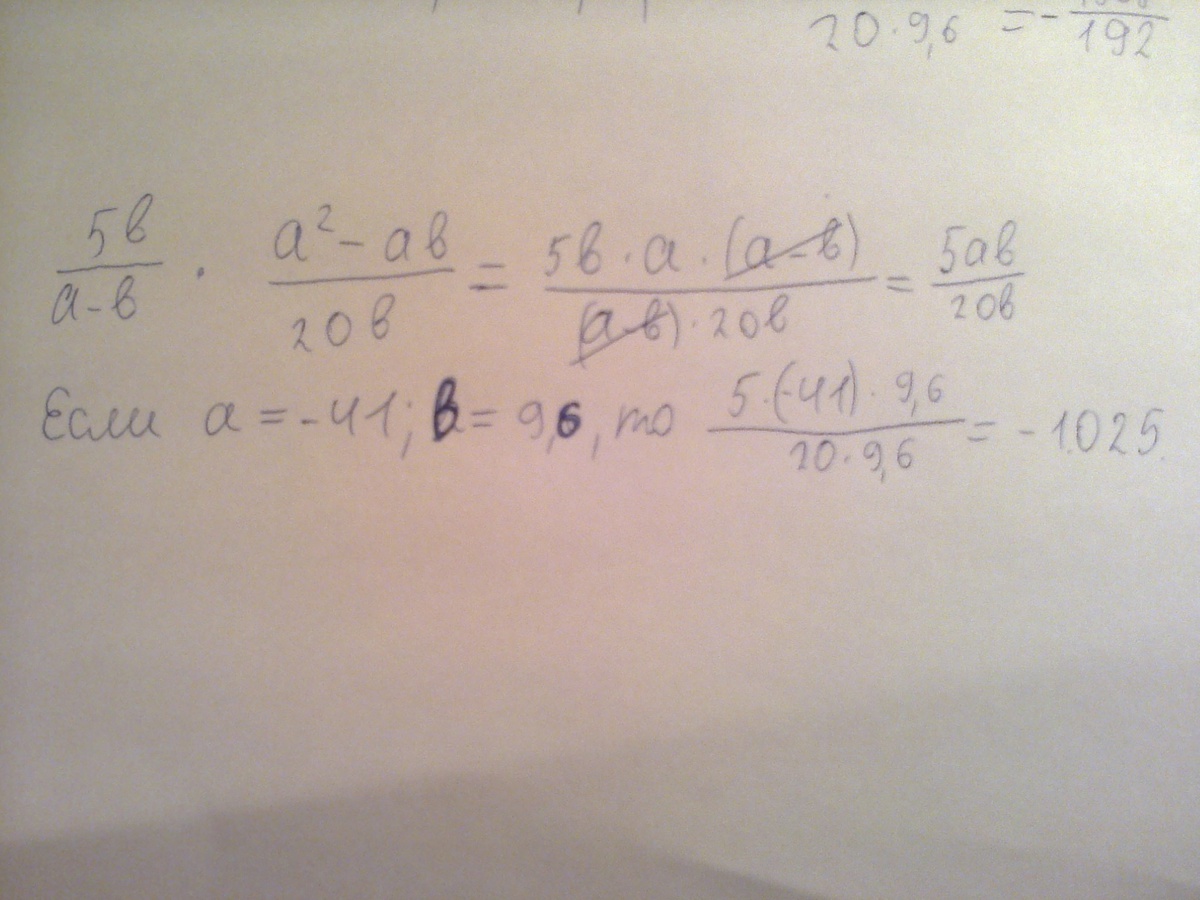 20·9,6 = - /192
5в/(а-в) · (а²-ав)/20в = 5в·а·(а-в)/(а-в)·20в = 5ав/20в
Если а = -41; в = 9,6, то 5·(-41)·9,6/20·9,6 = -1.025.